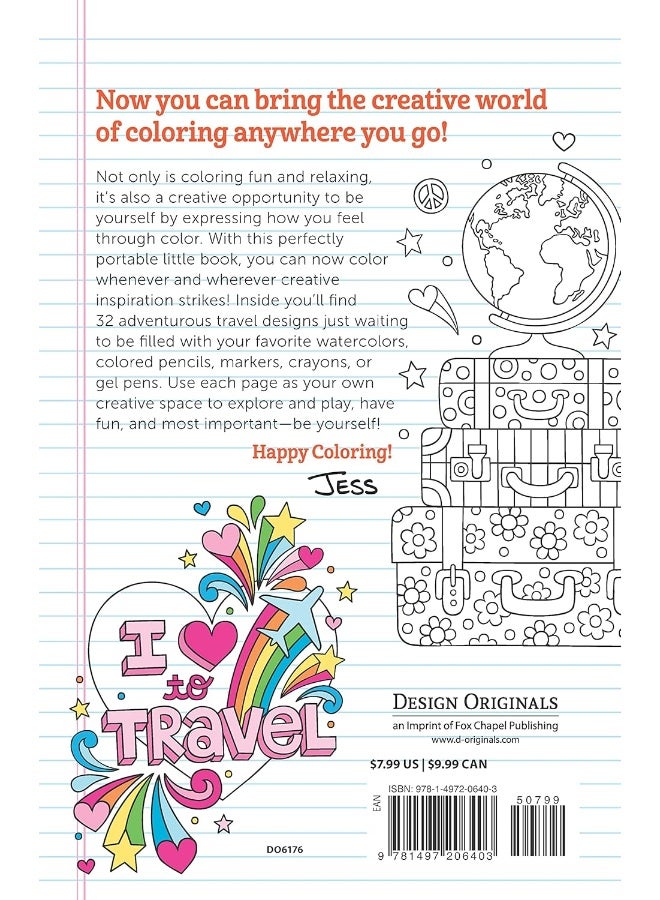 Now you can bring the creative world
of coloring anywhere you go!
Not only is coloring fun and relaxing,
it's also a creative opportunity to be
yourself by expressing how you feel
through color. With this perfectly
portable little book, you can now color
whenever and wherever creative
inspiration strikes! Inside you'll find
32 adventurous travel designs just waiting
to be filled with your favorite watercolors,
colored pencils, markers, crayons, or
gel pens. Use each page as your own
creative space to explore and play, have
fun, and most important—be yourself!
Happy Coloring!
Jess
I
to
TRAVEL
DESIGN ORIGINALS
an Imprint of Fox Chapel Publishing
www.d-originals.com
$7.99 US | $9.99 CAN
ISBN: 978-1-4972-0640-3
50799
EAN
9 781497 206403
DO6176